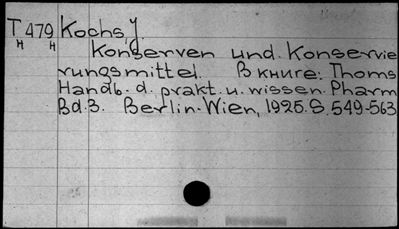 T 479 Kochs, J.
H H
Konserven und Konservie
rungsmittel. В книге: Thoms
Handb. d. prakt. u. wissen. Pharm
Bd. 3. Berlin-Wien, 1925. S. 549-563